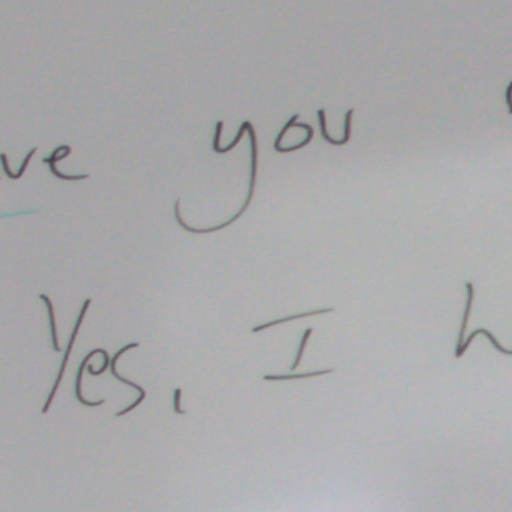 ve you
Yes, I h